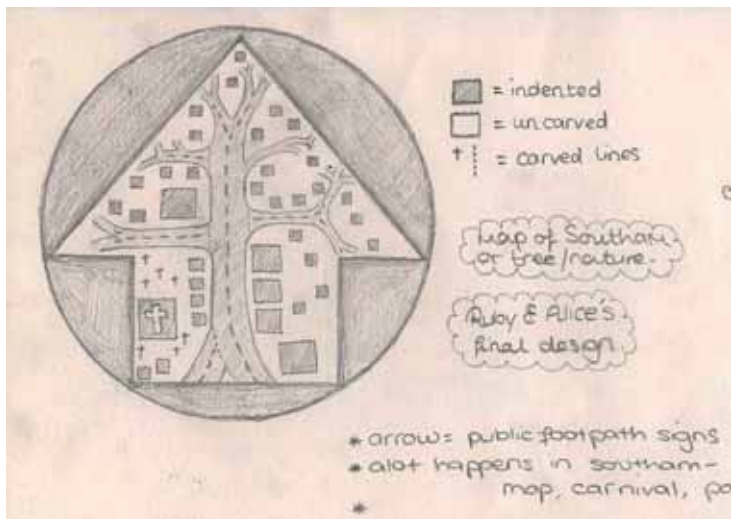 = indented
= uncarved
= carved lines
Map of Southam
or tree/nature.
Ruby & Alice's
final design
* arrow = public footpath signs
* alot happens in southam -
map, carnival,
*